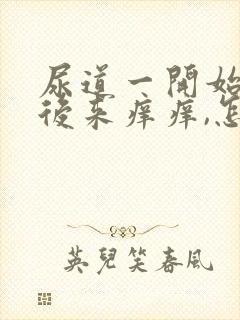 尿道一開始
後来痒痒,怎
英兒笑春風